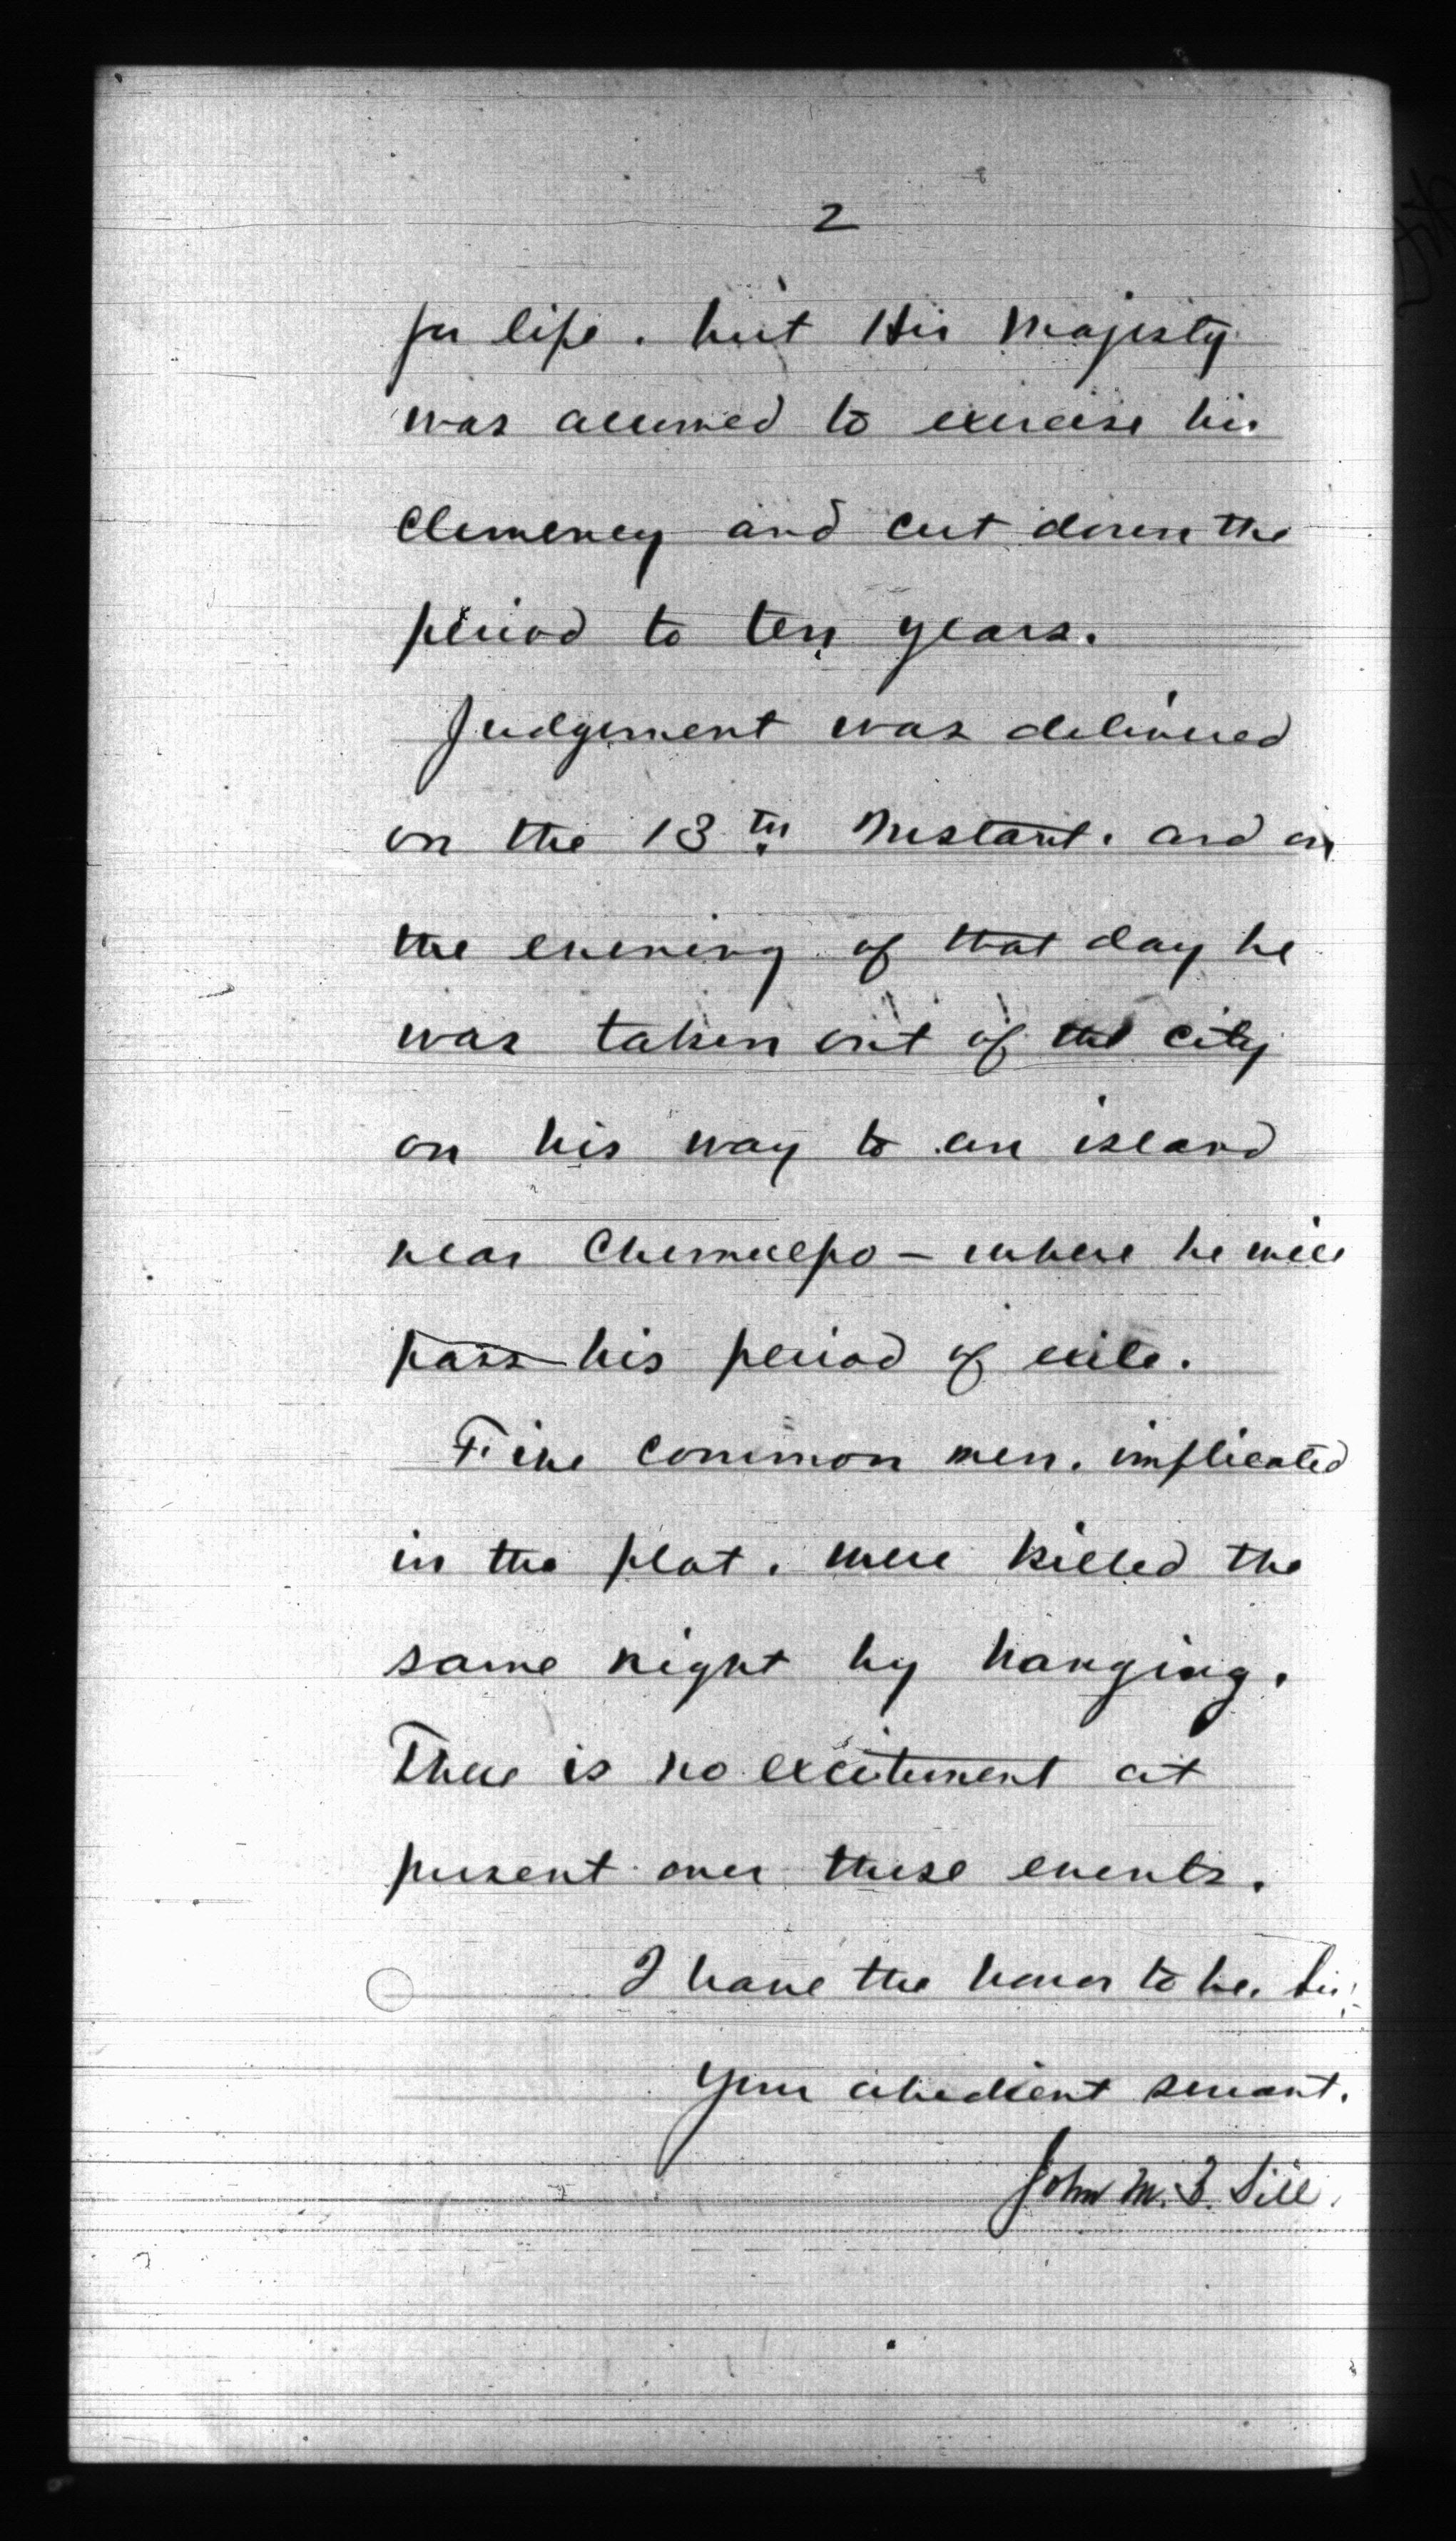 2
for life, but His Majesty
was assumed to exercise his
Clemency and cut down the
period to ten years.
Judgement was delivered
on the 13th Instant, and on
the evening of that day he
was taken out of the city
on his way to an island
near Chemulpo - where he will
pass his period of exile.
Five common men, implicated
in the plot, were killed the
same night by hanging.
There is no excitement at
present over these events.
I have the honor to be, Sir,
Your obedient servant,
John M. B. Sill.